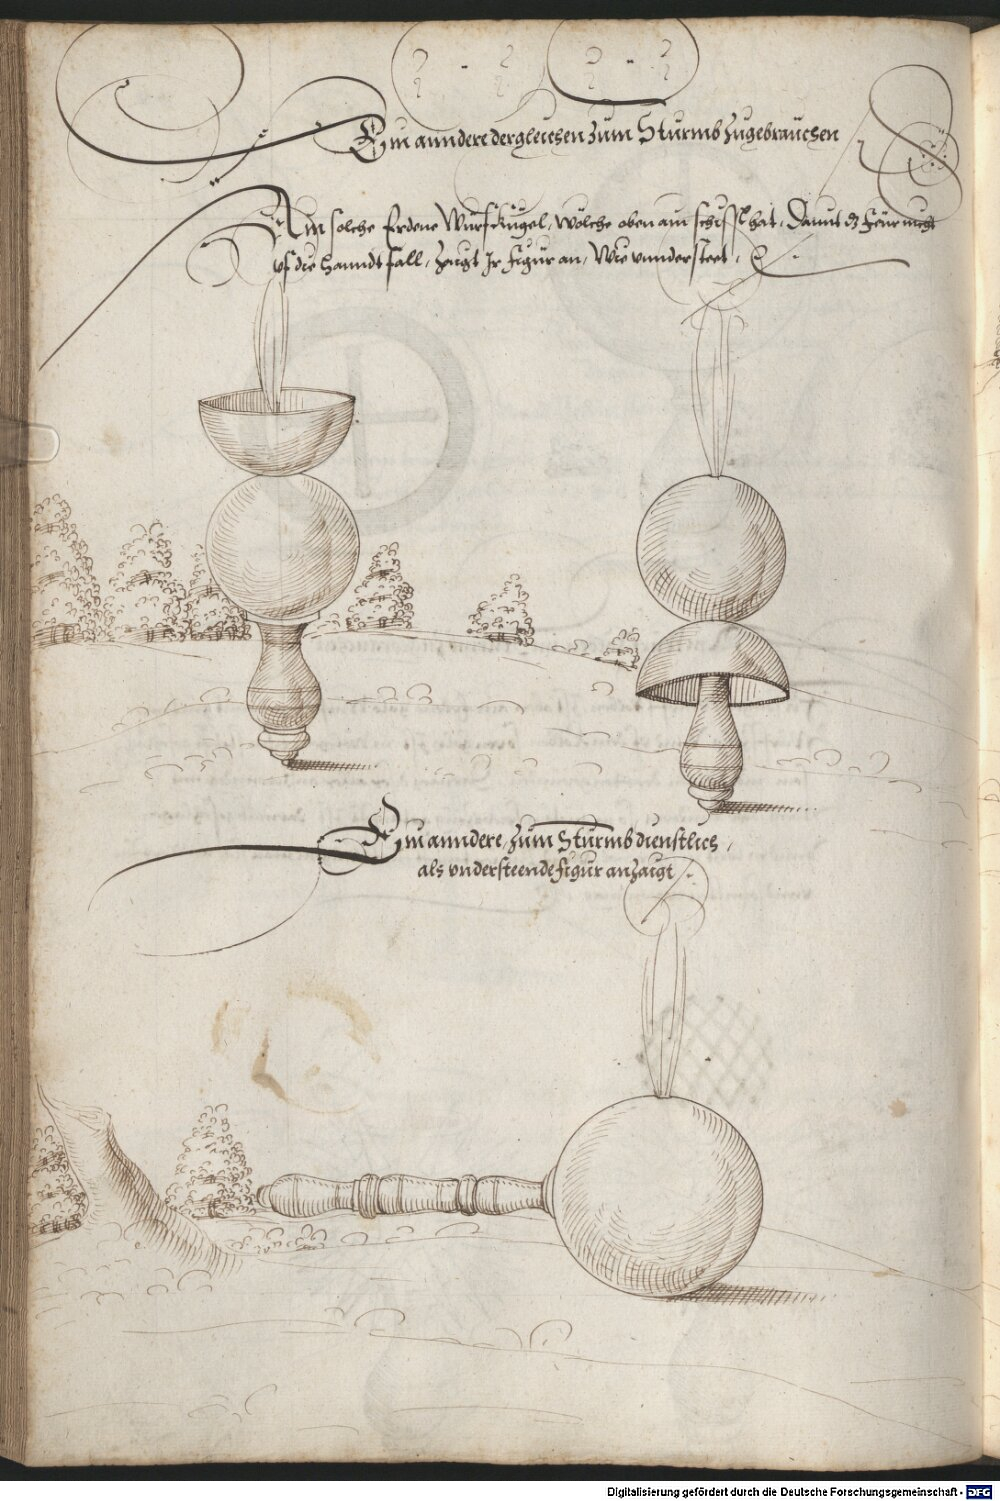 Ein anndere dergleichen zum Sturmb zugebrauchen
Ain solche Erdene Wurfkugel, wölche oben ain schissl hat, Damit dz Feür nicht
uf die Hanndt fall, zaigt Ir figur an, Wie vnndersteet.
Ein anndere, zum Sturmb dienstlich,
als vndersteende figur anzaigt
Digitalisierung gefördert durch die Deutsche Forschungsgemeinschaft - DFG